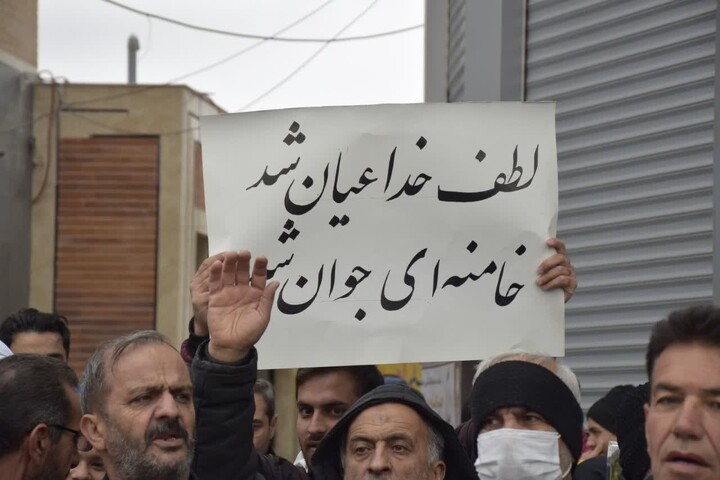 لطف خدا عیان شد
خامنه‌ای جوان شد